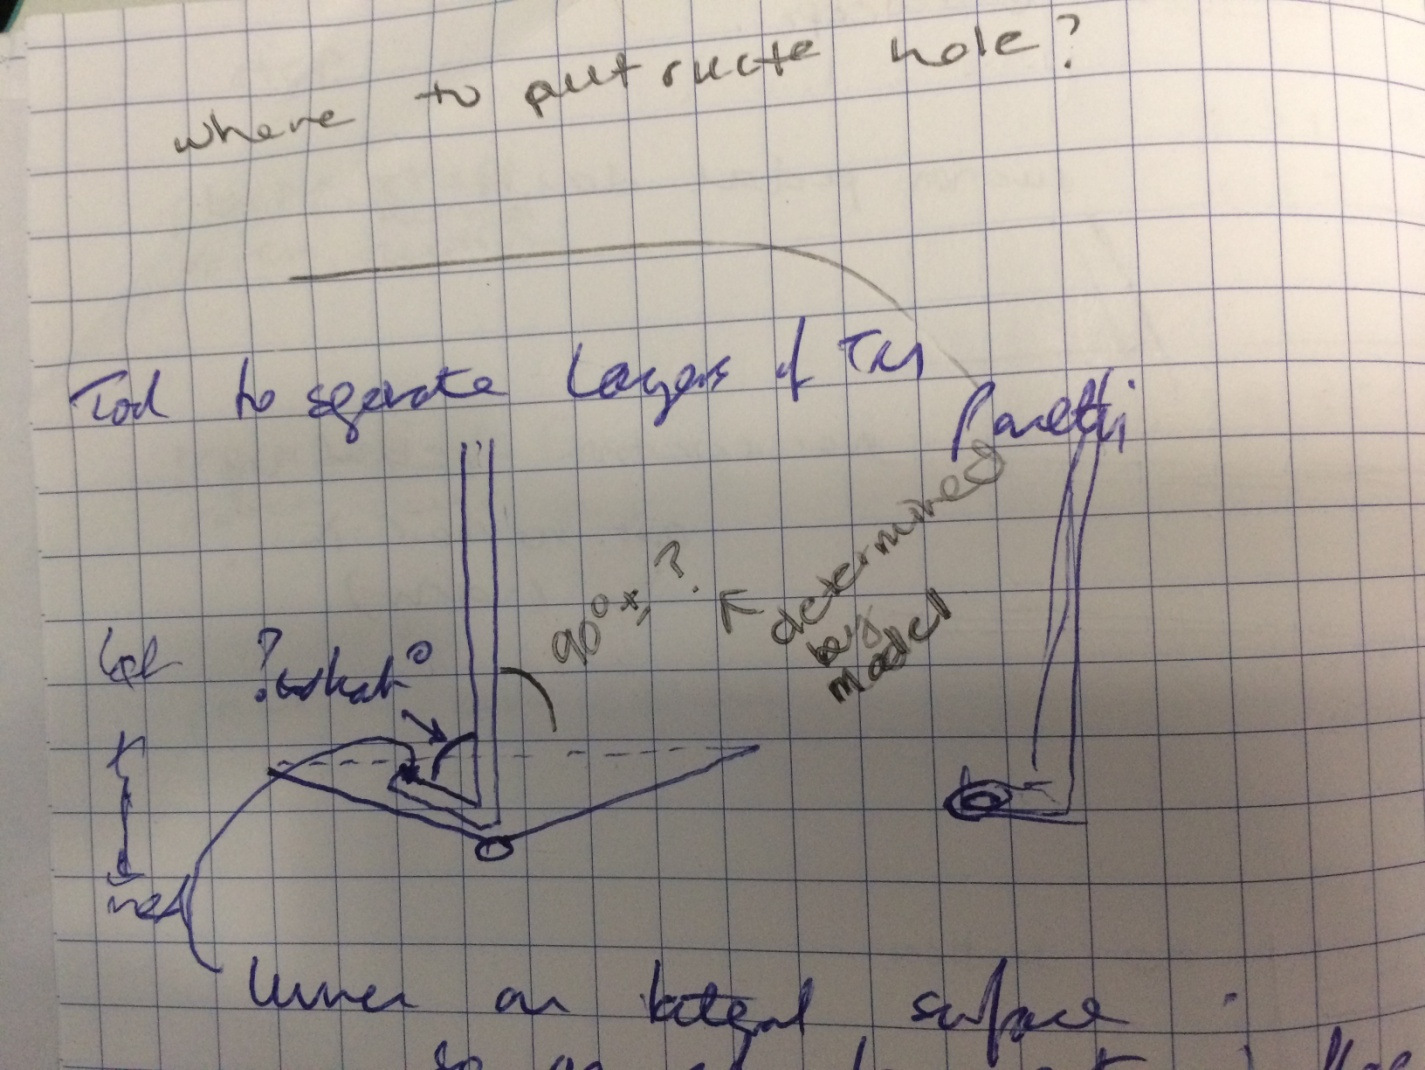 where to put sucte hole?
Tool to seperate layers of TM
Panetti
90° ± ?
determined
by
model
Lat
? what °
med
lumen on lateral surface
so